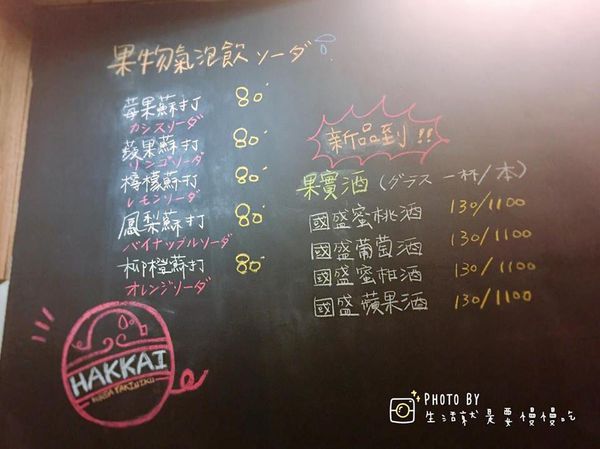 果物氣泡飲 ソーダ
莓果蘇打 80
カシスソーダ
蘋果蘇打 80
リンゴソーダ
檸檬蘇打 80
レモンソーダ
鳳梨蘇打 80
パイナップルソーダ
柳橙蘇打 80
オレンジソーダ
新品到!!
果實酒 (グラス 一杯/本)
國盛蜜桃酒 130/1100
國盛葡萄酒 130/1100
國盛蜜柑酒 130/1100
國盛蘋果酒 130/1100
HAKKAI
YAKINIKU
PHOTO BY
生活就是要慢慢吃